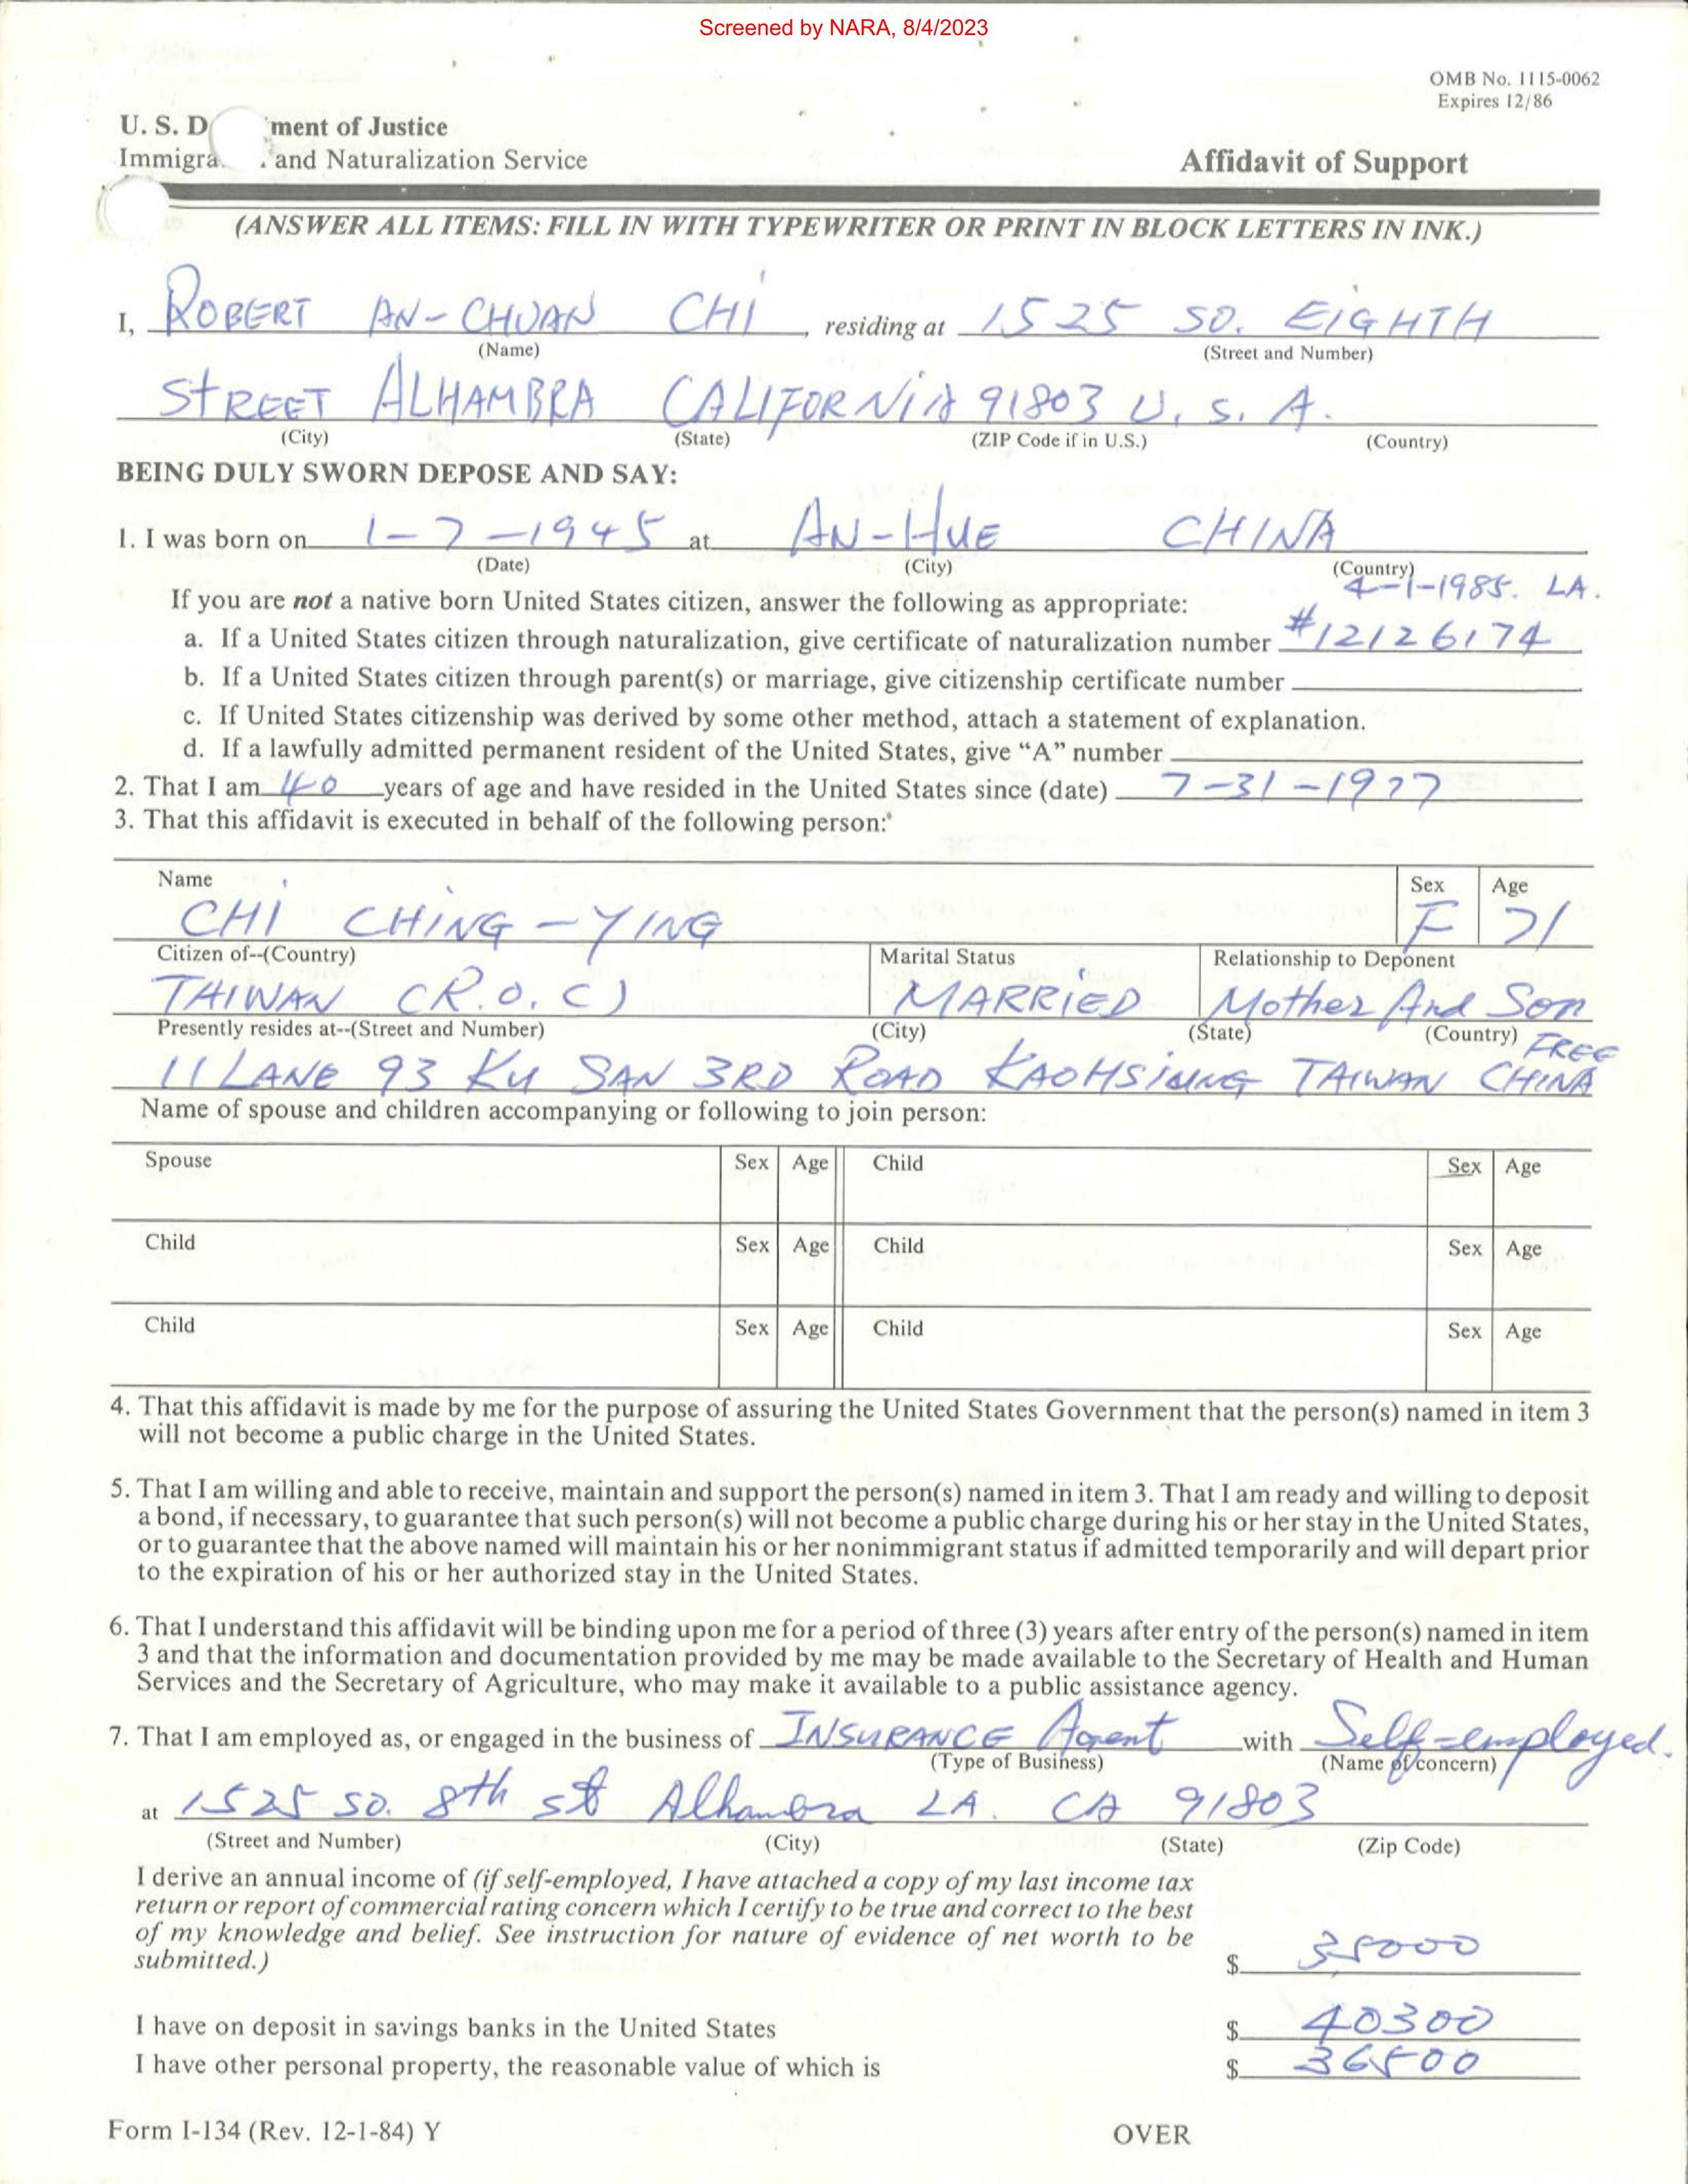 Screened by NARA, 8/4/2023
OMB No. 1115-0062
Expires 12/86
U. S. D ment of Justice
Immigra and Naturalization Service
Affidavit of Support
(ANSWER ALL ITEMS: FILL IN WITH TYPEWRITER OR PRINT IN BLOCK LETTERS IN INK.)
I, ROBERT AN-CHUAN CHI, residing at 1525 SO. EIGHTH
(Name) (Street and Number)
STREET ALHAMBRA CALIFORNIA 91803 U. S. A.
(City) (State) (ZIP Code if in U.S.) (Country)
BEING DULY SWORN DEPOSE AND SAY:
1. I was born on 1-7-1945 at AN-HUE CHINA
(Date) (City) (Country)
4-1-1985. LA.
If you are not a native born United States citizen, answer the following as appropriate:
a. If a United States citizen through naturalization, give certificate of naturalization number #12126174
b. If a United States citizen through parent(s) or marriage, give citizenship certificate number
c. If United States citizenship was derived by some other method, attach a statement of explanation.
d. If a lawfully admitted permanent resident of the United States, give “A” number
2. That I am 40 years of age and have resided in the United States since (date) 7-31-1977
3. That this affidavit is executed in behalf of the following person:
Name Sex Age
CHI CHING-YING F 71
Citizen of--(Country) Marital Status Relationship to Deponent
TAIWAN (R.O.C) MARRIED Mother And Son
Presently resides at--(Street and Number) (City) (State) (Country) FREE
11 LANE 93 KU SAN 3RD ROAD KAOHSIUNG TAIWAN CHINA
Name of spouse and children accompanying or following to join person:
Spouse Sex Age Child Sex Age
Child Sex Age Child Sex Age
Child Sex Age Child Sex Age
4. That this affidavit is made by me for the purpose of assuring the United States Government that the person(s) named in item 3
will not become a public charge in the United States.
5. That I am willing and able to receive, maintain and support the person(s) named in item 3. That I am ready and willing to deposit
a bond, if necessary, to guarantee that such person(s) will not become a public charge during his or her stay in the United States,
or to guarantee that the above named will maintain his or her nonimmigrant status if admitted temporarily and will depart prior
to the expiration of his or her authorized stay in the United States.
6. That I understand this affidavit will be binding upon me for a period of three (3) years after entry of the person(s) named in item
3 and that the information and documentation provided by me may be made available to the Secretary of Health and Human
Services and the Secretary of Agriculture, who may make it available to a public assistance agency.
7. That I am employed as, or engaged in the business of INSURANCE Agent with Self-employed.
(Type of Business) (Name of concern)
at 1525 SO. 8th st Alhambra LA. CA 91803
(Street and Number) (City) (State) (Zip Code)
I derive an annual income of (if self-employed, I have attached a copy of my last income tax
return or report of commercial rating concern which I certify to be true and correct to the best
of my knowledge and belief. See instruction for nature of evidence of net worth to be
submitted.) $ 35000
I have on deposit in savings banks in the United States $ 40300
I have other personal property, the reasonable value of which is $ 36500
Form I-134 (Rev. 12-1-84) Y
OVER